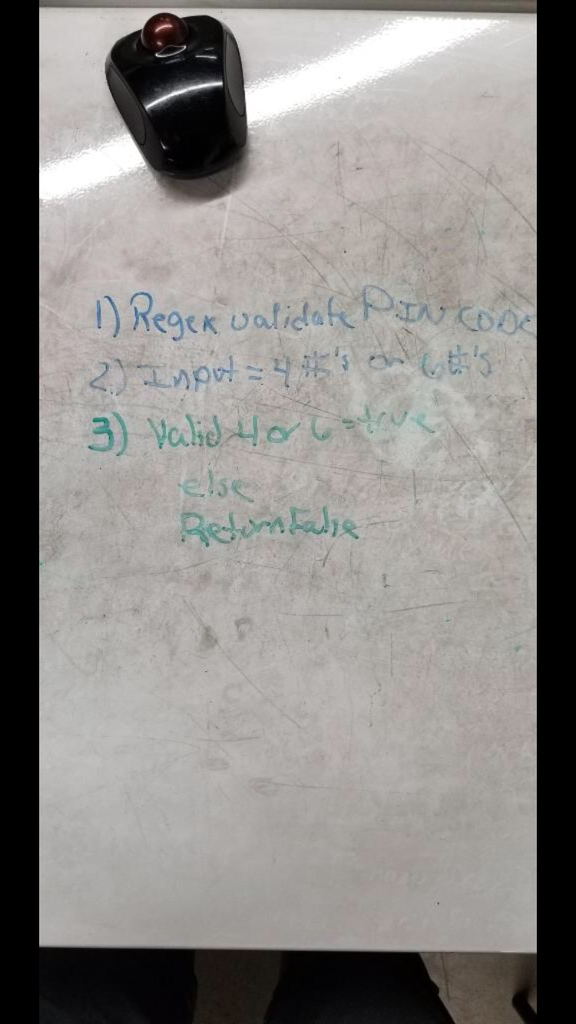 1) Regex validate PIN CODE
2) Input = 4 #'s or 6 #'s
3) Valid 4 or 6 = true
else
Return False